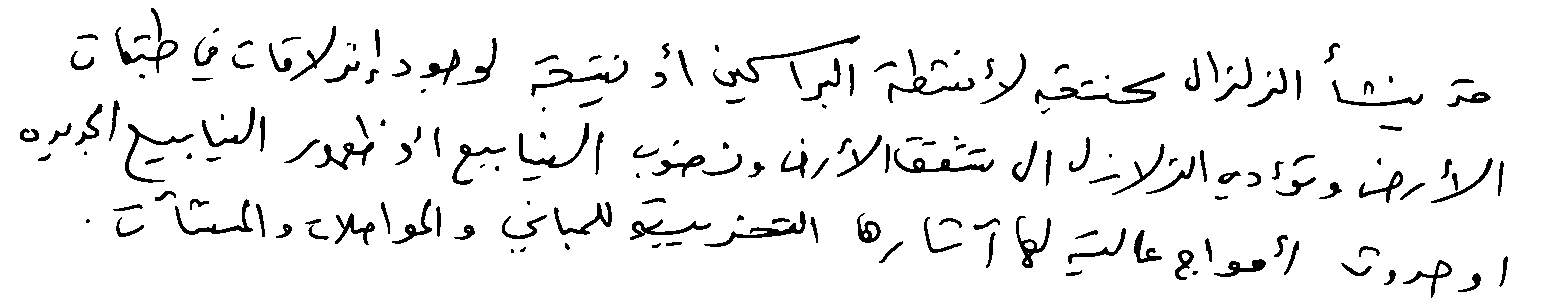 قد ينشأ الزلزال كنتيجه لأنشطة البراكين أو نتيجة لوجود إنزلاقات في طبقات
الأرض وتؤدي الزلازل الى تشقق الأرض ونضوب الينابيع او ظهور الينابيع الجديده
او حدوث أمواج عالية لها آثارها التخريبية للمباني والمواصلات والمنشآت .